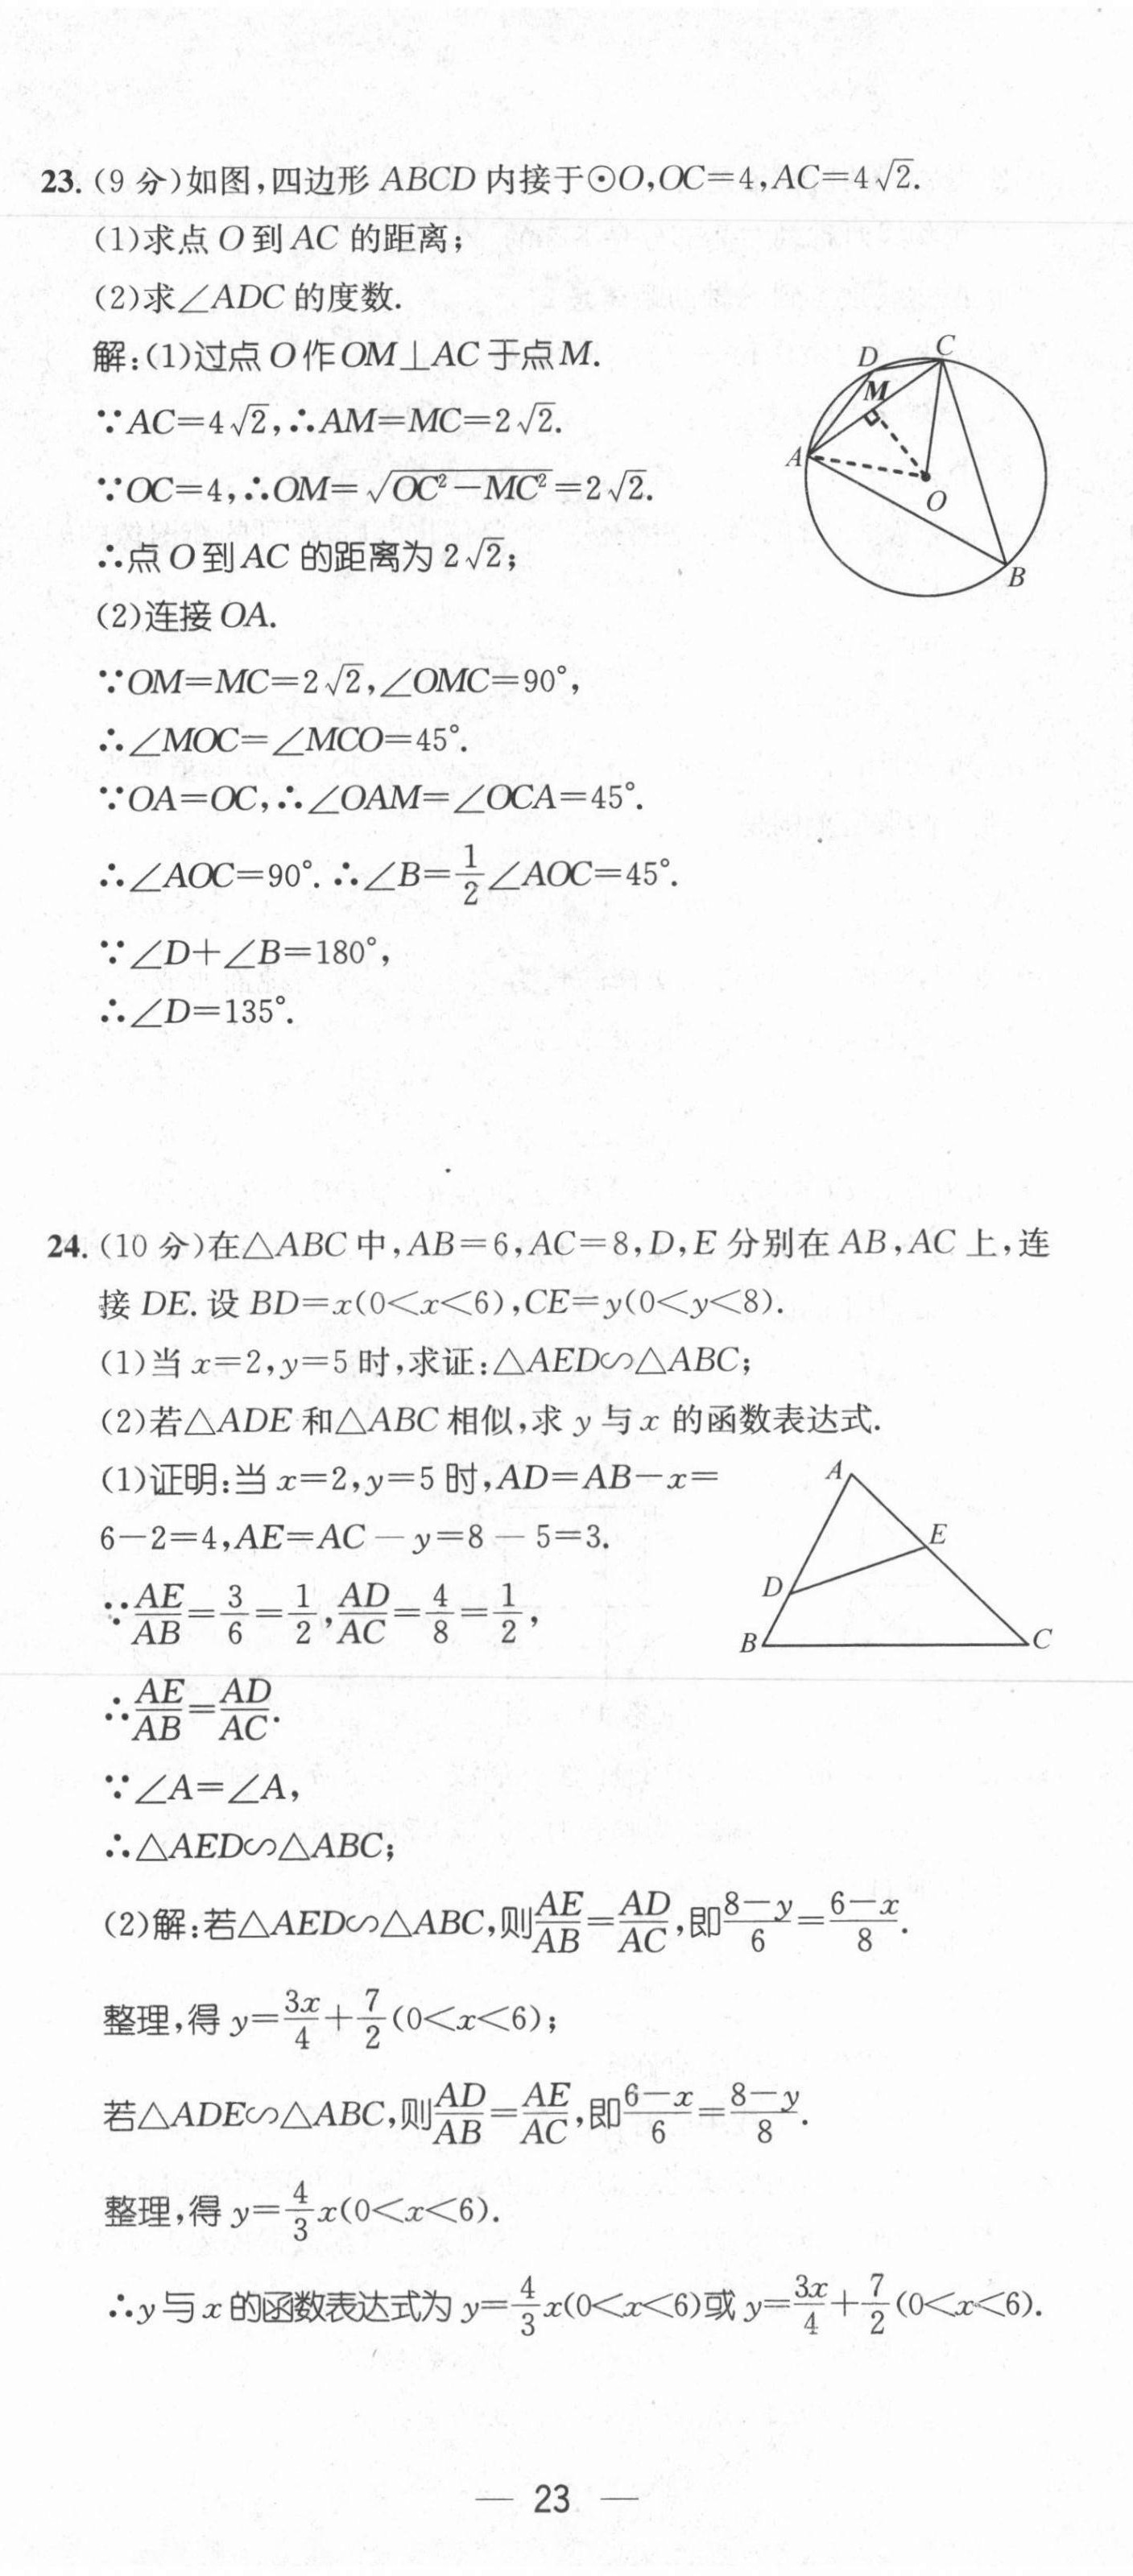 23. (9 分)如图,四边形 ABCD 内接于⊙O,OC=4,AC=4√2.
(1)求点 O 到 AC 的距离;
(2)求∠ADC 的度数.
解:(1)过点 O 作 OM⊥AC 于点 M.
∵AC=4√2,∴AM=MC=2√2.
∵OC=4,∴OM=√(OC²-MC²)=2√2.
∴点 O 到 AC 的距离为 2√2;
(2)连接 OA.
∵OM=MC=2√2,∠OMC=90°,
∴∠MOC=∠MCO=45°.
∵OA=OC,∴∠OAM=∠OCA=45°.
∴∠AOC=90°.∴∠B=1/2∠AOC=45°.
∵∠D+∠B=180°,
∴∠D=135°.
D
C
M
A
O
B
24. (10 分)在△ABC 中,AB=6,AC=8,D,E 分别在 AB,AC 上,连
接 DE. 设 BD=x(0<x<6),CE=y(0<y<8).
(1)当 x=2,y=5 时,求证:△AED∽△ABC;
(2)若△ADE 和△ABC 相似,求 y 与 x 的函数表达式.
(1)证明:当 x=2,y=5 时,AD=AB-x=
6-2=4,AE=AC-y=8-5=3.
∵AE/AB=3/6=1/2,AD/AC=4/8=1/2,
∴AE/AB=AD/AC.
∵∠A=∠A,
∴△AED∽△ABC;
A
E
D
B
C
(2)解:若△AED∽△ABC,则AE/AB=AD/AC,即(8-y)/6=(6-x)/8.
整理,得 y=3x/4+7/2(0<x<6);
若△ADE∽△ABC,则AD/AB=AE/AC,即(6-x)/6=(8-y)/8.
整理,得 y=4/3x(0<x<6).
∴y 与 x 的函数表达式为 y=4/3x(0<x<6)或 y=3x/4+7/2(0<x<6).
— 23 —